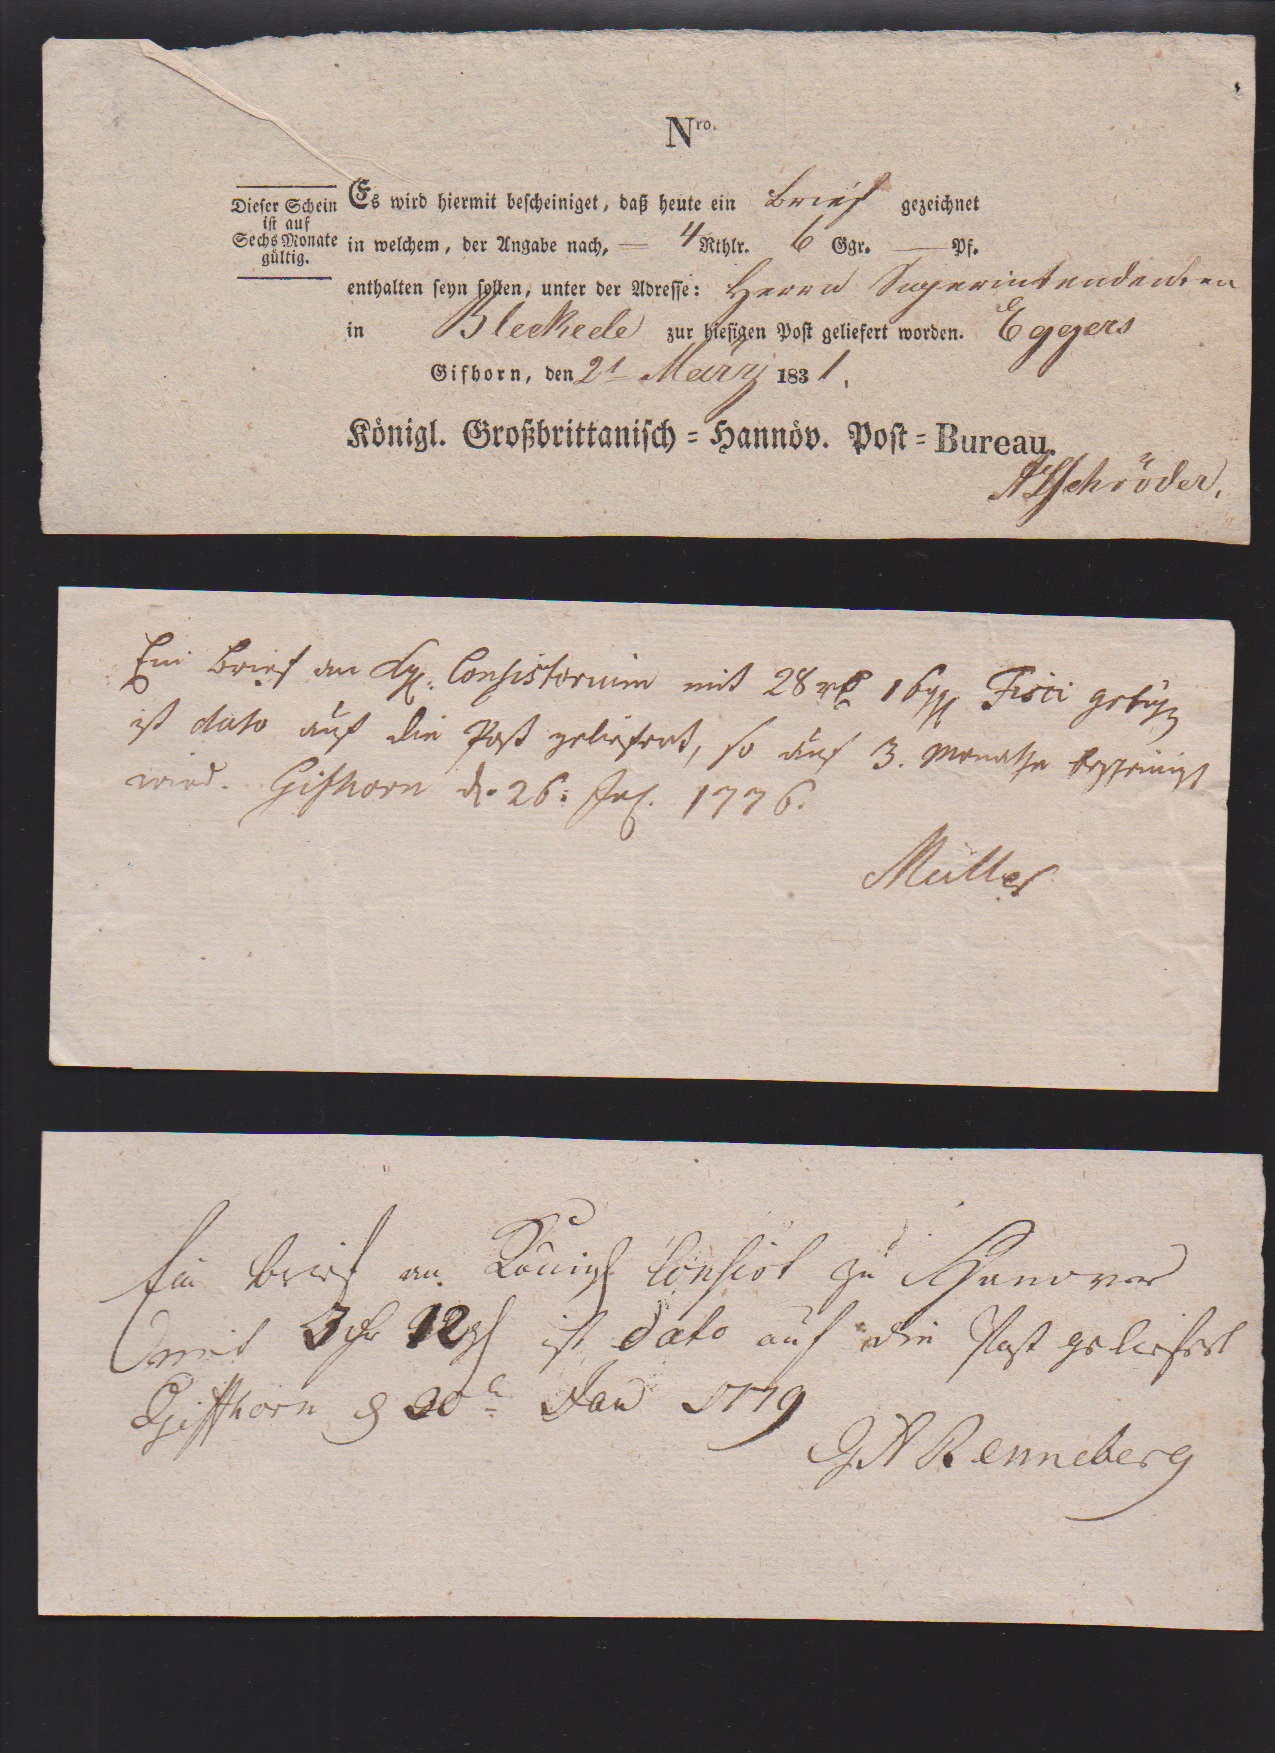 Nro.
Dieser Schein
ist auf
Sechs Monate
gültig.
Es wird hiermit bescheiniget, daß heute ein Brief gezeichnet
in welchem, der Angabe nach, — 4 Rthlr. 6 Ggr. — Pf.
enthalten seyn sollen, unter der Adresse: Herrn Superintendenten
in Bleckede zur hiesigen Post geliefert worden. Eggers
Gifhorn, den 21 März 1831.
Königl. Großbrittanisch-Hannöv. Post-Bureau.
Schröder.
Ein Brief an Consistorium mit 28 16 Fisci
ist dato auf die Post geliefert, so auf 3. Monathe bescheinigt
wird. Gifhorn d. 26. 1776.
Müller
Ein Brief an Königl Consist zu Hanover
mit 3 12 ist dato auf die Post geliefert
Giffhorn d 20 Jan 1779
Renneberg